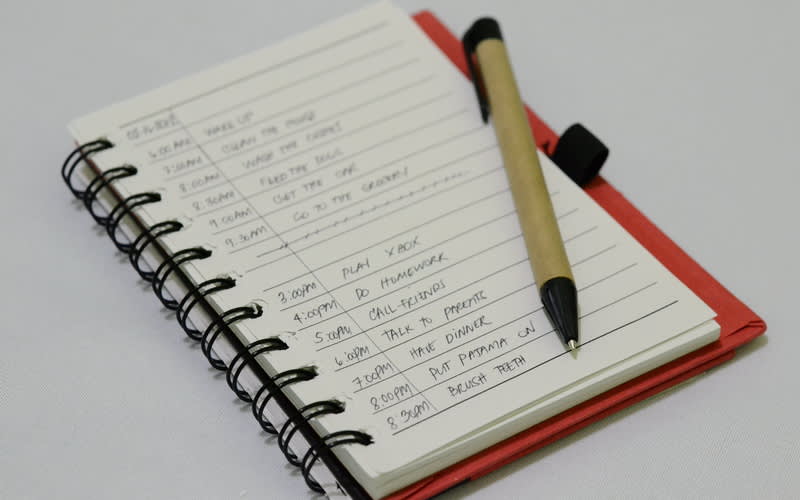 6:00AM WAKE UP
7:00AM CLEAN THE HOUSE
8:00AM WASH THE DISHES
8:30AM FEED THE DOGS
9:00AM GET THE CAR
9:30AM GO TO THE GROCERY
3:00PM PLAY XBOX
4:00PM DO HOMEWORK
5:00PM CALL FRIENDS
6:00PM TALK TO PARENTS
7:00PM HAVE DINNER
8:00PM PUT PATAMA ON
8:30PM BRUSH TEETH